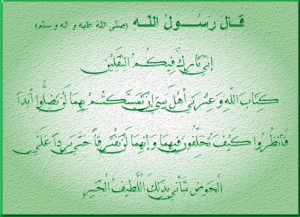 قال رسول الله (صلى الله عليه و اله و سلم)
إني تارك فيكم الثقلين
كتاب الله وعترتي أهل بيتي إن تمسكتم بهما لن تضلوا أبدا
فانظروا كيف تخلفوني فيهما وإنهما لن يفترقا حتى يردا علي
الحوض نبأني بذلك اللطيف الخبير